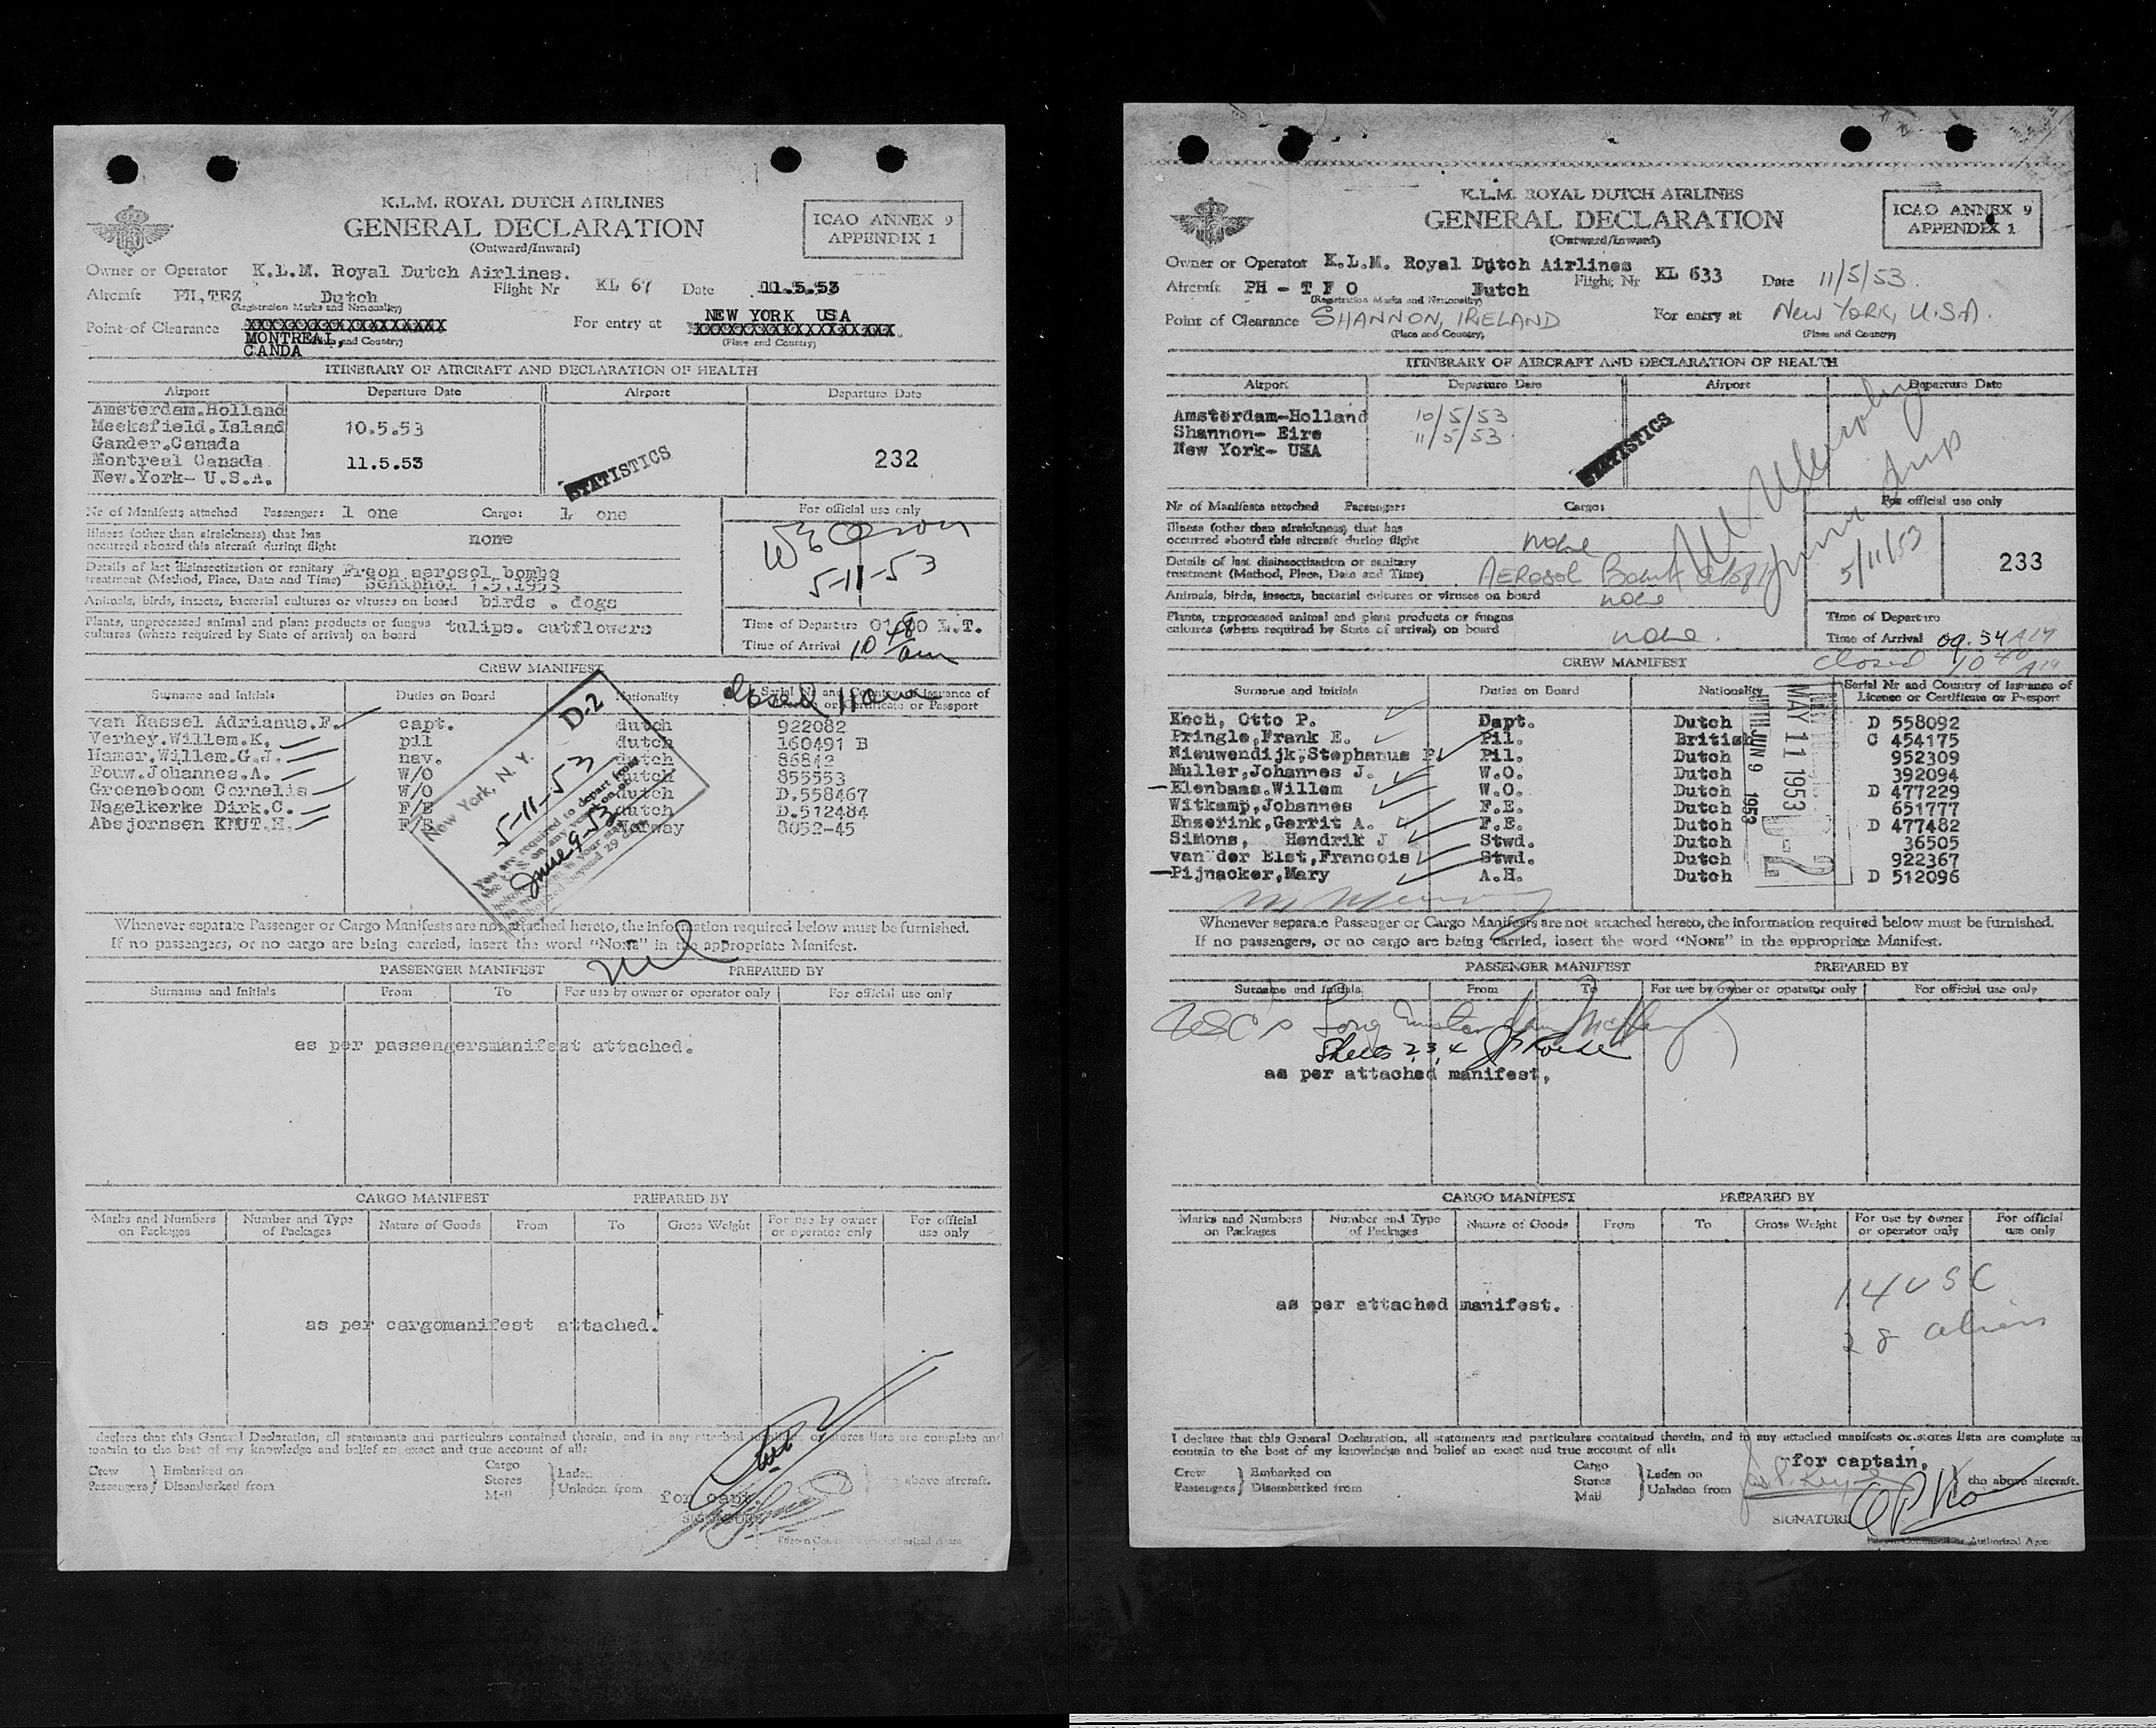 K.L.M. ROYAL DUTCH AIRLINES
GENERAL DECLARATION
(Outward/Inward)
ICAO ANNEX 9
APPENDIX 1
Owner or Operator K.L.M. Royal Dutch Airlines.
Aircraft PH.TEZ Dutch Flight Nr KL 67 Date 11.5.53
(Registration Marks and Nationality)
Point of Clearance XXXXXXXXXXXXXXXXXX For entry at NEW YORK USA
MONTREAL, and Country)
CANDA
XXXXXXXXXXXXXXXXXX
(Place and Country)
ITINERARY OF AIRCRAFT AND DECLARATION OF HEALTH
Airport Departure Date Airport Departure Date
Amsterdam.Holland
Meeksfield.Island 10.5.53
Gander.Canada
Montreal Canada 11.5.53
New.York- U.S.A.
STATISTICS
232
Nr of Manifests attached Passenger: 1 one Cargo: 1, one
For official use only
Illness (other than airsickness) that has
occurred aboard this aircraft during flight none
5-11-53
Details of last disinsectization or sanitary
treatment (Method, Place, Date and Time) Freon aerosol bombs
Schiphol 1.5.1953
Animals, birds, insects, bacterial cultures or viruses on board birds . dogs
Plants, unprocessed animal and plant products or fungus
cultures (where required by State of arrival) on board tulips. cutflowers
Time of Departure L.T.
Time of Arrival 10 48 am
CREW MANIFEST
Surname and Initials Duties on Board Nationality Serial Nr and Country of issuance of
Licence or Certificate or Passport
closed 11 am
van Rassel Adrianus.F. capt. dutch 922082
Verhey.Willem.K. pil dutch 160491 B
Hamer.Willem.G.J. nav. dutch 86842
Pouw.Johannes.A. W/O dutch 855553
Groeneboom Cornelis W/O dutch D.558467
Nagelkerke Dirk.C. F/E dutch D.512484
Absjornsen KNUT.H. F/E Norway 8052-45
New York, N. Y. D-2
5-11-53
You are required to depart from
the U.S. on any vessel on or
June 9-53
beyond 29
Whenever separate Passenger or Cargo Manifests are not attached hereto, the information required below must be furnished.
If no passengers, or no cargo are being carried, insert the word “None” in the appropriate Manifest.
PASSENGER MANIFEST PREPARED BY
Surname and Initials From To For use by owner or operator only For official use only
as per passengersmanifest attached.
CARGO MANIFEST PREPARED BY
Marks and Numbers on Packages Number and Type of Packages Nature of Goods From To Gross Weight For use by owner or operator only For official use only
as per cargomanifest attached.
I declare that this General Declaration, all statements and particulars contained therein, and in any attached manifests or stores lists are complete and
contain to the best of my knowledge and belief an exact and true account of all:
Crew Embarked on Cargo Laden
Passengers Disembarked from Stores Unladen from the above aircraft.
Mail
for capt.
SIGNATURE
K.L.M. ROYAL DUTCH AIRLINES
GENERAL DECLARATION
(Outward/Inward)
ICAO ANNEX 9
APPENDIX 1
Owner or Operator K.L.M. Royal Dutch Airlines
Aircraft PH - T F O Dutch Flight Nr KL 633 Date 11/5/53.
(Registration Marks and Nationality)
Point of Clearance SHANNON, IRELAND For entry at New York, U.S.A.
(Place and Country) (Place and Country)
ITINERARY OF AIRCRAFT AND DECLARATION OF HEALTH
Airport Departure Date Airport Departure Date
Amsterdam-Holland 10/5/53
Shannon- Eire 11/5/53
New York- USA
STATISTICS
Nr of Manifests attached Passenger: Cargo:
For official use only
Illness (other than airsickness) that has
occurred aboard this aircraft during flight none
5/11/53
233
Details of last disinsectization or sanitary
treatment (Method, Place, Date and Time) Aerosol Bomb
Animals, birds, insects, bacterial cultures or viruses on board none
Plants, unprocessed animal and plant products or fungus
cultures (where required by State of arrival) on board none.
Time of Departure
Time of Arrival 09.54 AM
closed 10 40 AM
CREW MANIFEST
Surname and Initials Duties on Board Nationality Serial Nr and Country of issuance of
Licence or Certificate or Passport
Koch, Otto P. Dapt. Dutch D 558092
Pringle,Frank E. Pil. British C 454175
Nieuwendijk,Stephanus P. Pil. Dutch 952309
Muller,Johannes J. W.O. Dutch 392094
Elenbaas.Willem W.O. Dutch D 477229
Witkamp,Johannes F.E. Dutch 651777
Enzerink,Gerrit A. F.E. Dutch D 477482
Simons, Hendrik J Stwd. Dutch 36505
van der Elst,Francois Stwd. Dutch 922367
Pijnacker,Mary A.H. Dutch D 512096
MAY 11 1953
UNTIL JUN 9 1953
D-2
Whenever separate Passenger or Cargo Manifests are not attached hereto, the information required below must be furnished.
If no passengers, or no cargo are being carried, insert the word “None” in the appropriate Manifest.
PASSENGER MANIFEST PREPARED BY
Surname and Initials From To For use by owner or operator only For official use only
Sheets 2 3 4
as per attached manifest,
CARGO MANIFEST PREPARED BY
Marks and Numbers on Packages Number and Type of Packages Nature of Goods From To Gross Weight For use by owner or operator only For official use only
14 USC
as per attached manifest.
28 aliens
I declare that this General Declaration, all statements and particulars contained therein, and in any attached manifests or stores lists are complete
contain to the best of my knowledge and belief an exact and true account of all:
for captain,
Crew Embarked on Cargo Laden on
Passengers Disembarked from Stores Unladen from the above aircraft.
Mail
SIGNATURE
Authorized Agent